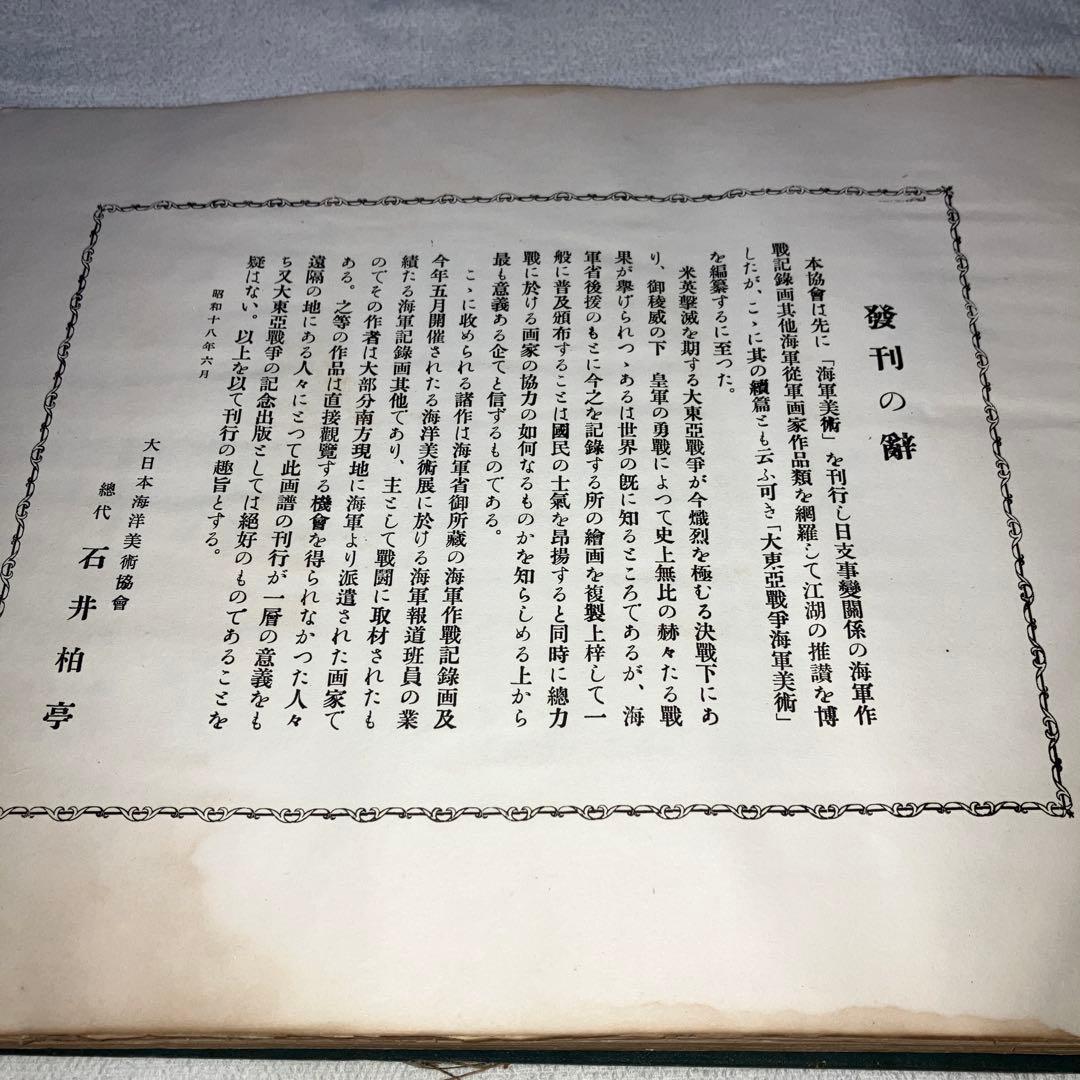 發刊の辭
本協會は先に「海軍美術」を刊行し日支事變關係の海軍作
戰記錄画其他海軍從軍画家作品類を網羅して江湖の推讃を博
したが、こゝに其の續篇とも云ふ可き「大東亞戰爭海軍美術」
を編纂するに至つた。
米英擊滅を期する大東亞戰爭が今熾烈を極むる決戰下にあ
り、御稜威の下 皇軍の勇戰によつて史上無比の赫々たる戰
果が擧げられつゝあるは世界の旣に知るところであるが、海
軍省後援のもとに今之を記錄する所の繪画を複製上梓して一
般に普及頒布することは國民の士氣を昂揚すると同時に總力
戰に於ける画家の協力の如何なるものかを知らしめる上から
最も意義ある企てと信ずるものである。
こゝに收められる諸作は海軍省御所藏の海軍作戰記錄画及
今年五月開催されたる海洋美術展に於ける海軍報道班員の業
績たる海軍記錄画其他であり、主として戰闘に取材されたも
のでその作者は大部分南方現地に海軍より派遣された画家で
ある。之等の作品は直接觀覽する機會を得られなかつた人々
遠隔の地にある人々にとつて此画譜の刊行が一層の意義をも
ち又大東亞戰爭の記念出版としては絕好のものであることを
疑はない。以上を以て刊行の趣旨とする。
昭和十八年六月
大日本海洋美術協會
總代 石井柏亭